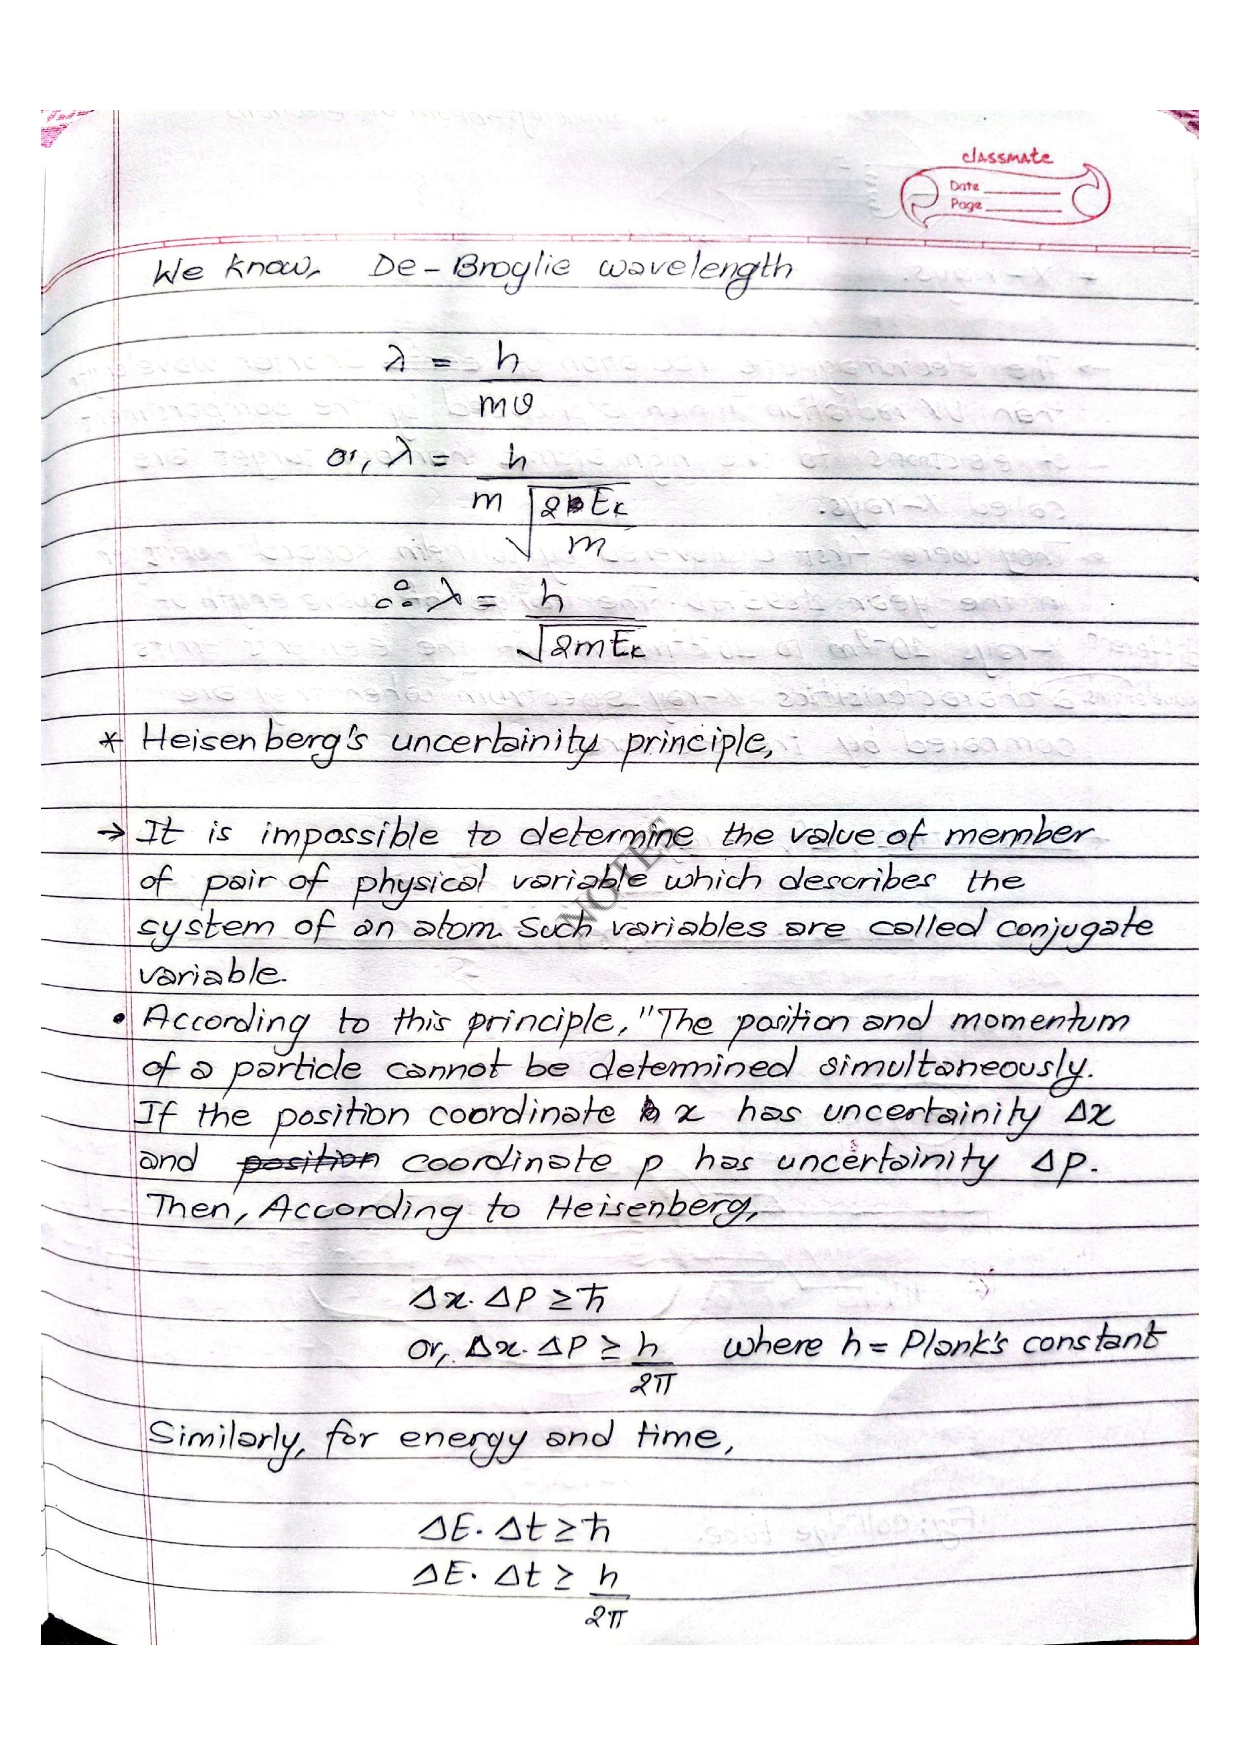 classmate
Date
Page
We know, De-Broglie wavelength
λ = h
mv
or, λ = h
m √2Eₖ
m
∴ λ = h
√2mEₖ
* Heisenberg's uncertainity principle,
→ It is impossible to determine the value of member
of pair of physical variable which describes the
system of an atom. Such variables are called conjugate
variable.
• According to this principle, "The position and momentum
of a particle cannot be determined simultaneously.
If the position coordinate x has uncertainity Δx
and position coordinate p has uncertainity Δp.
Then, According to Heisenberg,
Δx. ΔP ≥ ħ
or, Δx. ΔP ≥ h where h = Plank's constant
2π
Similarly, for energy and time,
ΔE. Δt ≥ ħ
ΔE. Δt ≥ h
2π
NOTES